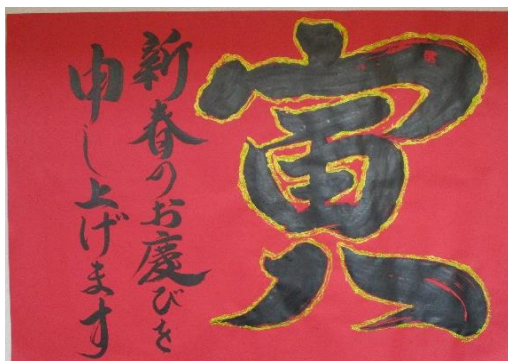 寅
新春のお慶びを
申し上げます